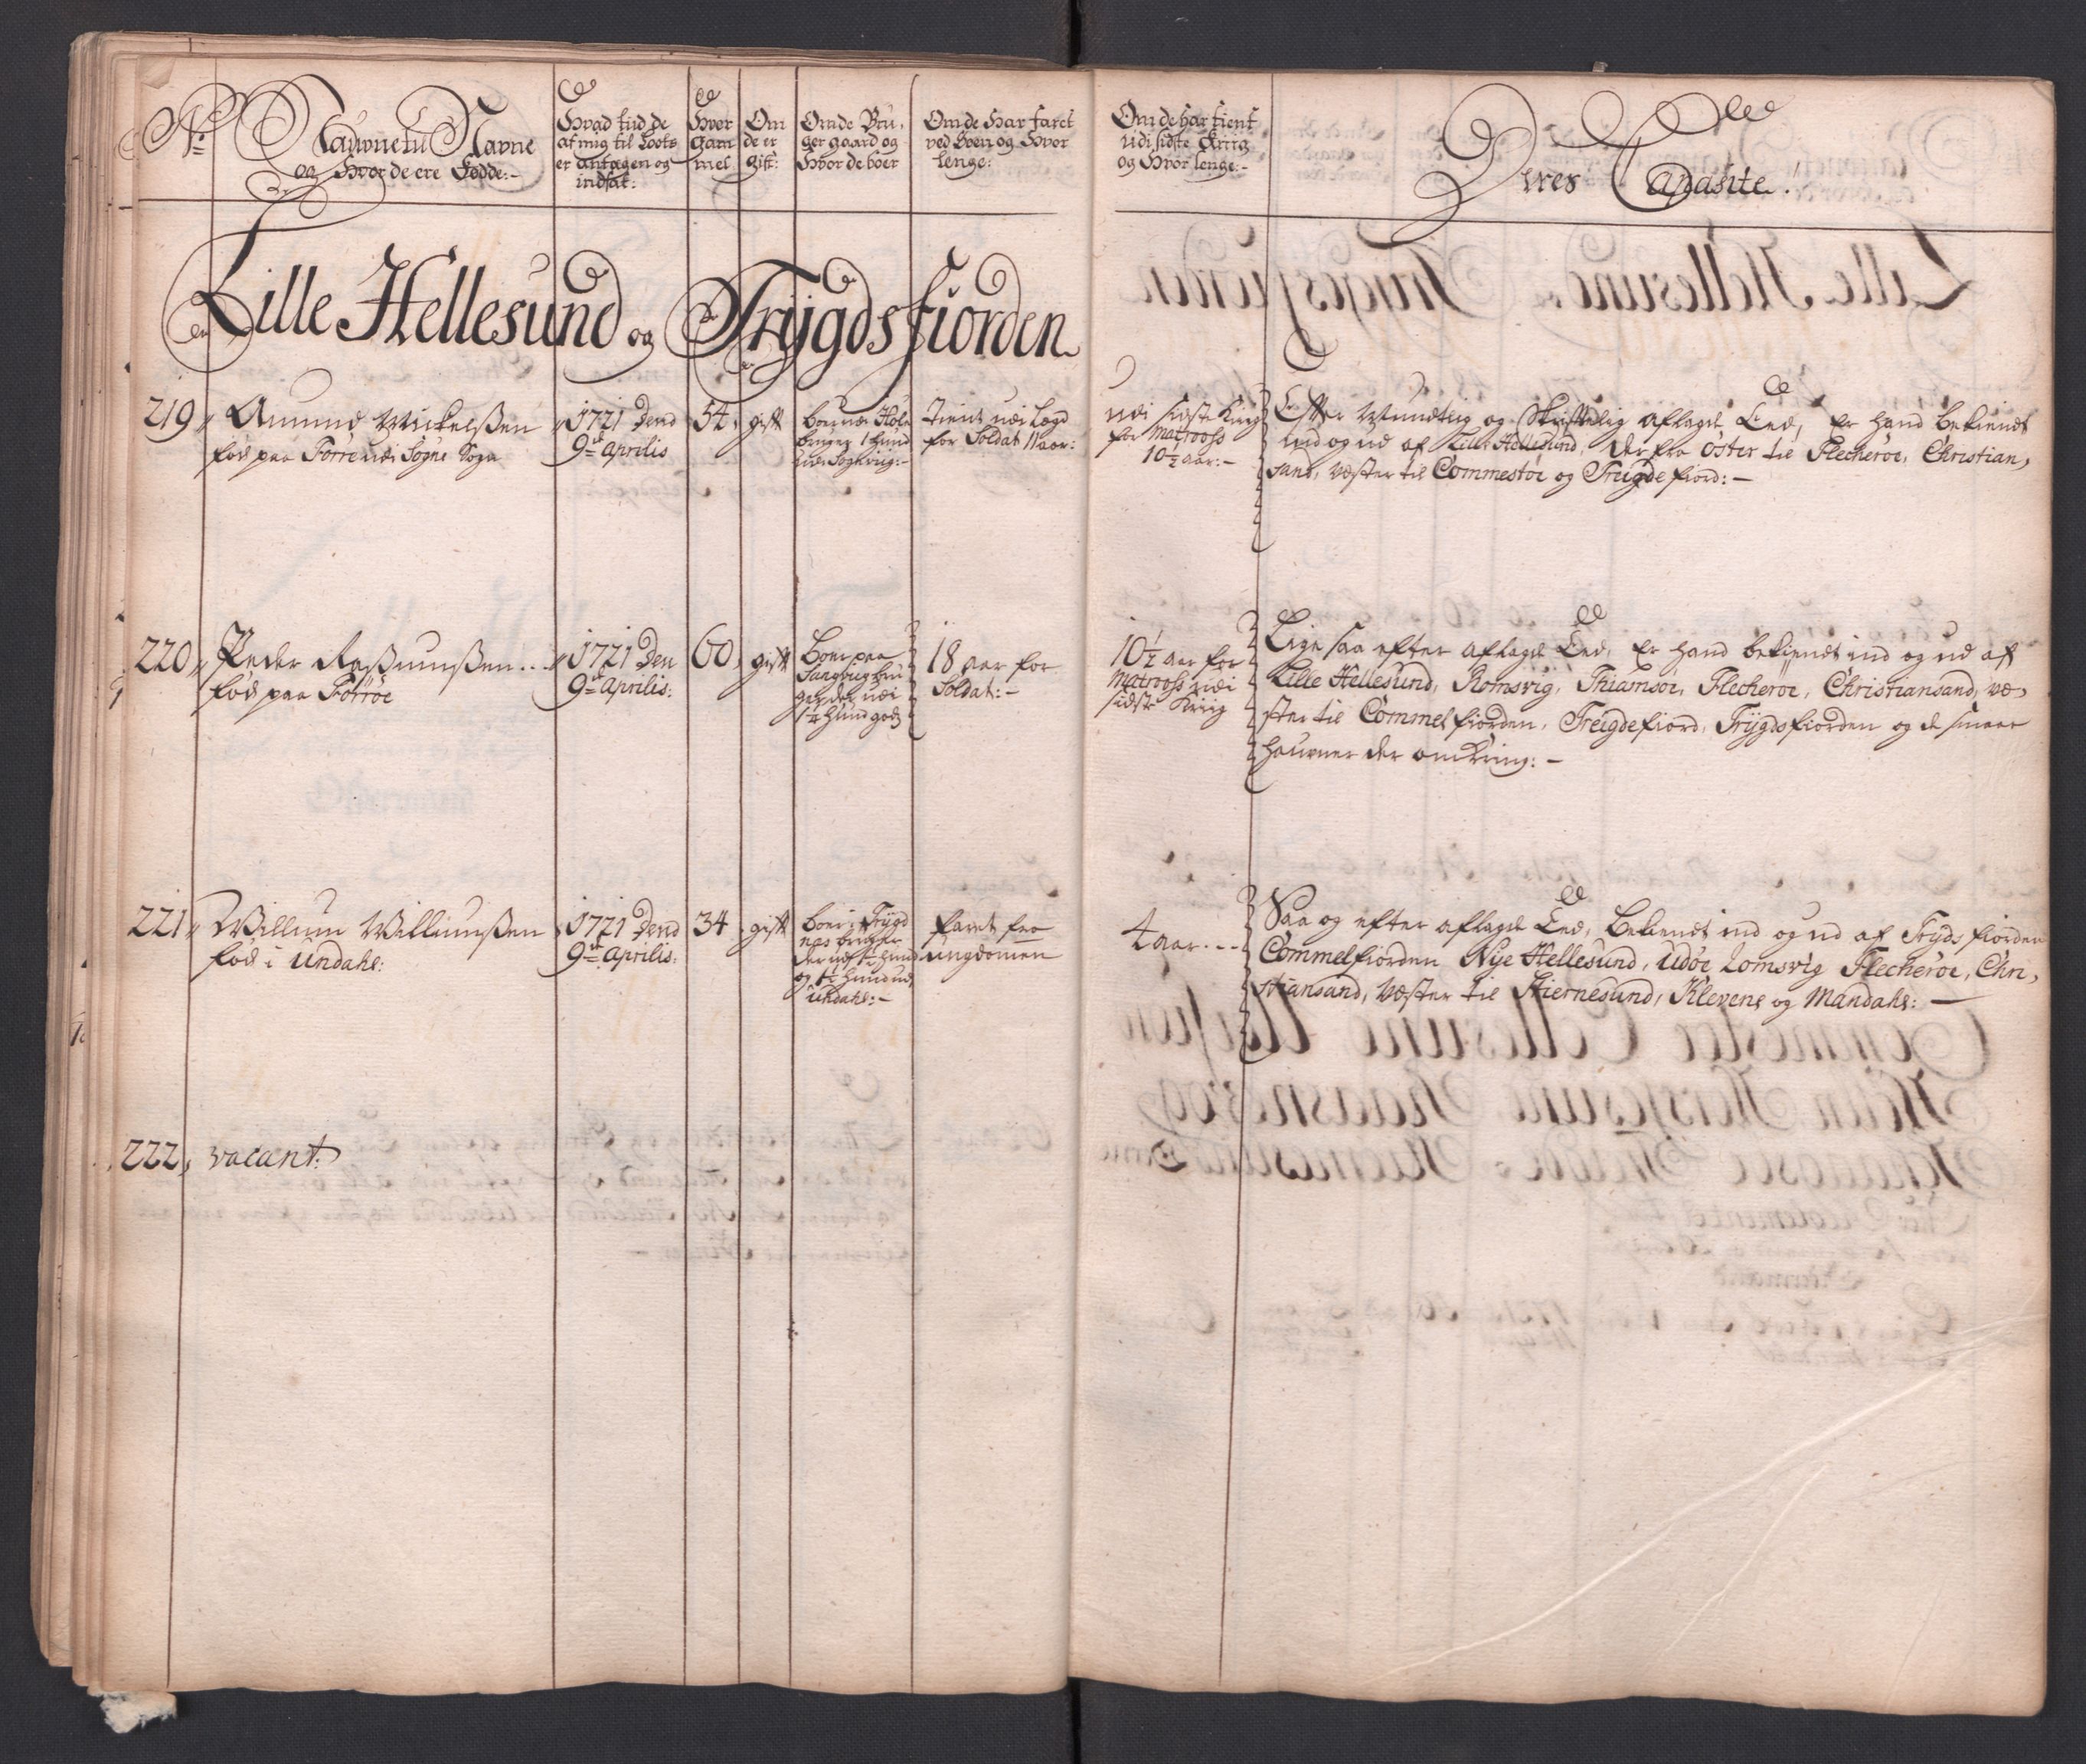 No.
Naufnetu Navne
og Hvor de ere Födde:-
Hvad tiid de
af mig til Loots
er antagen og
indsat:
Hvor
gam
mel
Om
de er
gift:
Om de Bru,
ger gaard og
Hvor de boer
Om de Har faret
ved Söen og Hvor
lenge:
Om de har tient
udi sidste Kriig
og Hvor lenge:-
Deres Capasite.
Lille Hellesund og Trÿgdsfiorden
219,
Amund Mickelßen
föd paa Förre udi Sögne Sogn
1721 Dend
9de Aprilis
54,
gift
Boer udi
bruger 1 hund
udi
tient udi Lægd
for Soldat 11 aar:
udi sidste Kriig
for Matrooss
10½ aar:-
Efter Mundtlig og Skrifftelig aflagde Eed, Er hand bekiendt
ind og ud af Lille Hellesund, der fra öster til Flecheröe, Christian,
sand, væster til Commestöe og Treigde fiord:-
220,
Peder Raßmunßen..
föd paa Förröe
1721 Den
9de Aprilis:
60,
gift
Boer paa
bru
ger der udi
1½ hund gods
18 aar for
Soldat:-
10½ aar for
Matrooss udi
sidste Kriig
Lige saa efter aflagde Eed, Er hand bekiendt ind og ud af
Lille Hellesund, Romsvig, Thiamsöe, Flecheröe, Christiansand, væ,
ster til Commelfiorden, Treigdefiord, Trÿgdsfiorden og de smaae
haufner der omkring:-
221,
Willum Willumßen
föd i Undahl:
1721 Dend
9de Aprilis:
34
gift
boer i Trÿgd
nes bruger
der udi ½ hund
og ½ hund udi
Undahl:-
faret fra
ungdomen
4 aar.--
Saa og efter aflagde Eed, Bekiendt ind og ud af Tryds fiorden
Commelfiorden Nÿe Hellesund, Udöe Lomsvig Flecheröe, Chri,
stiansand, væster til Skiernesund, Klevene og Mandahl:-
222,
vacant: